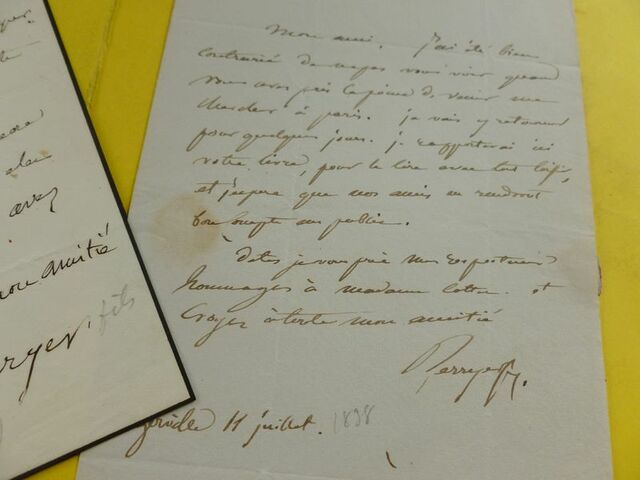 Mon ami, J'ai été bien
contrarié de ne pas vous voir quand
vous avez pris la peine de venir me
chercher à paris. je vais y retourner
pour quelques jours. je rapporterai ici
votre livre, pour le lire avec tout loisir,
et j'espère que nos amis en rendront
bon compte au public.
Dites je vous prie mes respectueux
hommages à madame et
croyez à toute mon amitié
Berryer fs.
11 juillet. 1838
avez
mon amitié
rryer. fils